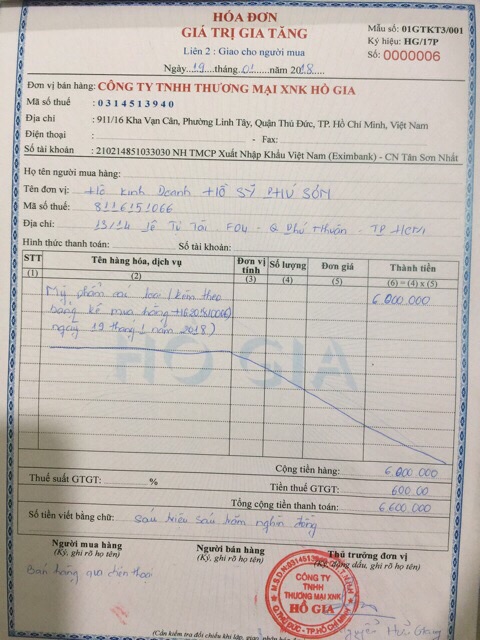 HÓA ĐƠN
GIÁ TRỊ GIA TĂNG
Liên 2 : Giao cho người mua
Ngày 19 tháng 01 năm 2018
Mẫu số: 01GTKT3/001
Ký hiệu: HG/17P
Số: 0000006
Đơn vị bán hàng: CÔNG TY TNHH THƯƠNG MẠI XNK HỒ GIA
Mã số thuế : 0314513940
Địa chỉ : 911/16 Kha Vạn Cân, Phường Linh Tây, Quận Thủ Đức, TP. Hồ Chí Minh, Việt Nam
Điện thoại : - Fax:
Số tài khoản : 210214851033030 NH TMCP Xuất Nhập Khẩu Việt Nam (Eximbank) - CN Tân Sơn Nhất
Họ tên người mua hàng:
Tên đơn vị: Hộ Kinh Doanh HỒ SỸ PHÚ SƠN
Mã số thuế: 8116151066
Địa chỉ: 13/14 - Q Phú Nhuận - TP HCM
Hình thức thanh toán: Số tài khoản:
STT Tên hàng hóa, dịch vụ Đơn vị tính Số lượng Đơn giá Thành tiền
(1) (2) (3) (4) (5) (6) = (4) x (5)
Mỹ phẩm các loại (kèm theo 6.000.000
bảng kê mua hàng
ngày 19 tháng 1 năm 2018)
HỒ GIA
Cộng tiền hàng: 6.000.000
Thuế suất GTGT: % Tiền thuế GTGT: 600.00
Tổng cộng tiền thanh toán: 6.600.000
Số tiền viết bằng chữ: Sáu triệu sáu trăm nghìn đồng
Người mua hàng Người bán hàng Thủ trưởng đơn vị
(Ký, ghi rõ họ tên) (Ký, ghi rõ họ tên) (Ký, đóng dấu, ghi rõ họ tên)
Bán hàng qua điện thoại
CÔNG TY
TNHH
THƯƠNG MẠI XNK
HỒ GIA
Q.THỦ ĐỨC - TP.HỒ CHÍ MINH
(Cần kiểm tra đối chiếu khi lập, giao, nhận hóa đơn)